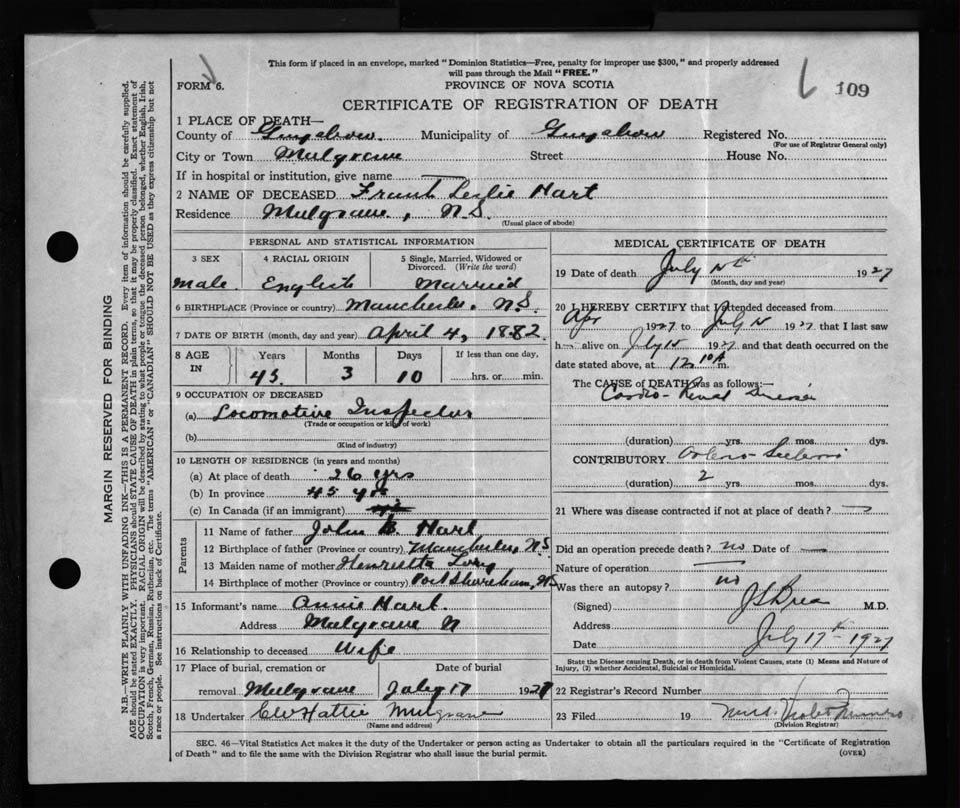 This form if placed in an envelope, marked "Dominion Statistics—Free, penalty for improper use $300," and properly addressed
will pass through the Mail "FREE."
FORM 6.
PROVINCE OF NOVA SCOTIA
109
CERTIFICATE OF REGISTRATION OF DEATH
1 PLACE OF DEATH—
County of Guysboro Municipality of Guysboro Registered No.
(For use of Registrar General only)
City or Town Mulgrave Street House No.
If in hospital or institution, give name —
2 NAME OF DECEASED Frank Leslie Hart
Residence Mulgrave, N.S.
(Usual place of abode)
PERSONAL AND STATISTICAL INFORMATION
3 SEX 4 RACIAL ORIGIN 5 Single, Married, Widowed or Divorced. (Write the word)
Male. English Married
6 BIRTHPLACE (Province or country) Manchester, N.S.
7 DATE OF BIRTH (month, day and year) April 4, 1882.
8 AGE IN Years Months Days If less than one day,
45. 3 10 hrs. or min.
9 OCCUPATION OF DECEASED
(a) Locomotive Inspector
(Trade or occupation or kind of work)
(b)
(Kind of industry)
10 LENGTH OF RESIDENCE (in years and months)
(a) At place of death 26 yrs
(b) In province 45 yrs
(c) In Canada (if an immigrant)
Parents
11 Name of father John B. Hart
12 Birthplace of father (Province or country) Manchester, N.S
13 Maiden name of mother Henrietta Long
14 Birthplace of mother (Province or country) Port Shoreham, N.S.
15 Informant's name Annie Hart.
Address Mulgrave N
16 Relationship to deceased Wife
17 Place of burial, cremation or Date of burial
removal Mulgrave July 17 1927
18 Undertaker C W Hattie Mulgrave
(Name and address)
MEDICAL CERTIFICATE OF DEATH
19 Date of death July 1927
(Month, day and year)
20 I HEREBY CERTIFY that I attended deceased from
Apr 1927 to July 1927 that I last saw
h alive on July 1927 and that death occurred on the
date stated above, at m.
The CAUSE of DEATH was as follows:—
Cardio-Renal Disease
(duration) yrs. mos. dys.
CONTRIBUTORY Arterio-Sclerosis
(duration) 2 yrs. mos. dys.
21 Where was disease contracted if not at place of death? —
Did an operation precede death? no Date of —
Nature of operation —
Was there an autopsy? no
(Signed) M.D.
Address
Date July 17th 1927
State the Disease causing Death, or in death from Violent Causes, state (1) Means and Nature of
Injury, (2) whether Accidental, Suicidal or Homicidal.
22 Registrar's Record Number
23 Filed 19 Violet
(Division Registrar)
SEC. 46—Vital Statistics Act makes it the duty of the Undertaker or person acting as Undertaker to obtain all the particulars required in the "Certificate of Registration
of Death" and to file the same with the Division Registrar who shall issue Burial Permit.
(OVER)
MARGIN RESERVED FOR BINDING
N.B.—WRITE PLAINLY WITH UNFADING INK—THIS IS A PERMANENT RECORD. Every item of information should be carefully supplied.
AGE should be stated EXACTLY. PHYSICIANS should STATE CAUSE OF DEATH in plain terms, so that it may be properly classified. Exact statement of
OCCUPATION is very important. RACIAL ORIGIN will be described by stating to what people or tongue the deceased person belonged, whether English, Irish,
Scotch, French, German, Russian, Ruthenian, etc. The terms "AMERICAN" or "CANADIAN" SHOULD NOT BE USED as they express citizenship but not
a race or people. See instructions on back of Certificate.